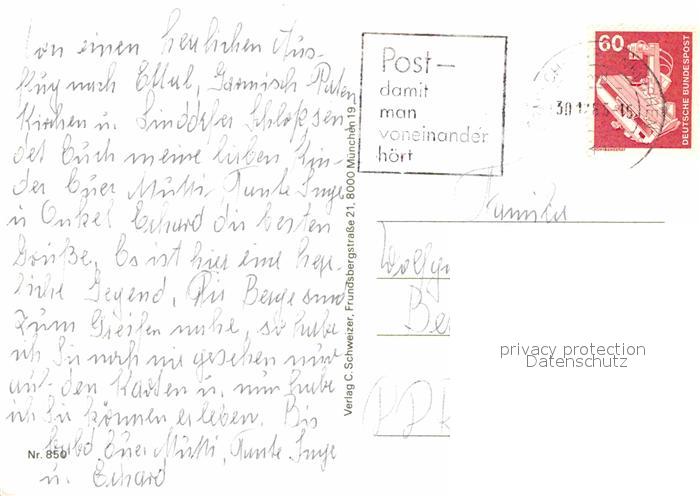 Von einen herlichen Aus-
flug nach Ettal, Garmisch-Paten
Kirchen u. Linddorfer Schloß sen
det Euch meine lieben Kin-
der Euer Mutti, Tante Inge
u Onkel Erhard die besten
Grüße. Es ist hier eine herr-
liche Gegend, Die Berge sind
zum Greifen nahe, so habe
ich Sie noch nie gesehen nur
auf den Karten u. nun habe
ich Sie können erleben. Bis
bald Euer Mutti, Tante Inge
u. Erhard
Nr. 850
Verlag C. Schweizer, Frundsbergstraße 21, 8000 München 19
Post-
damit
man
voneinander
hört
60
DEUTSCHE BUNDESPOST
Familie
Wolfg
Be
privacy protection
Datenschutz